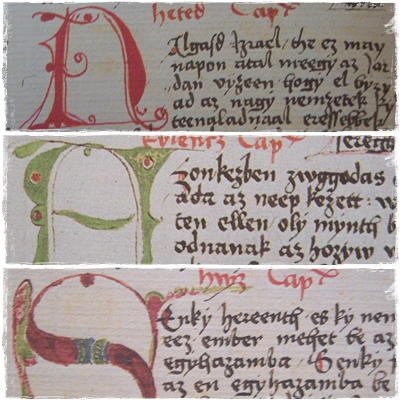 heted Capͬ
HAlgasd Israel/ the ez may
napon atal meegy az Jor
dan vyzeen hogy el byry
ad az nagy nemzetek ky
teenaladnaal eressebbek
Capͬ
AZonkezben zwggodas
ada az neep kezett: v
ten ellen oly mynth b
odnanak az hozyw v
hwz Capͬ
SEnky hereenth es ky nem
eez ember mehet be az
egyhazamba Senky
az en egyhazamba be